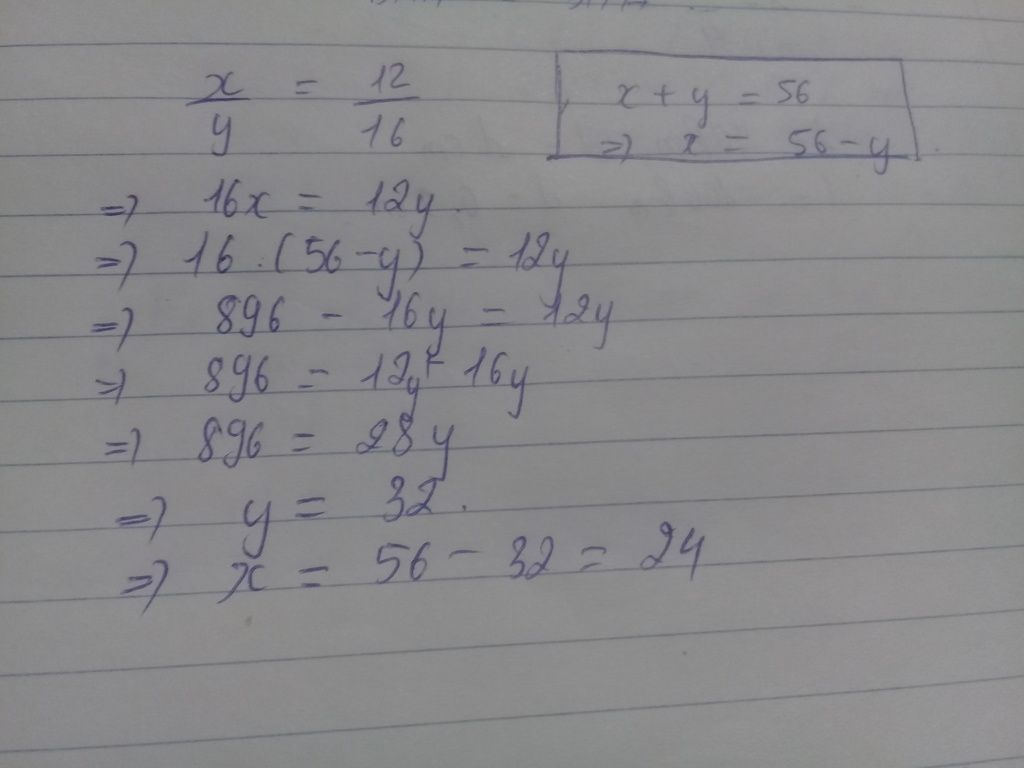 x/y = 12/16
x + y = 56
=> x = 56 - y
=> 16x = 12y
=> 16 . (56 - y) = 12y
=> 896 - 16y = 12y
=> 896 = 12y + 16y
=> 896 = 28y
=> y = 32.
=> x = 56 - 32 = 24